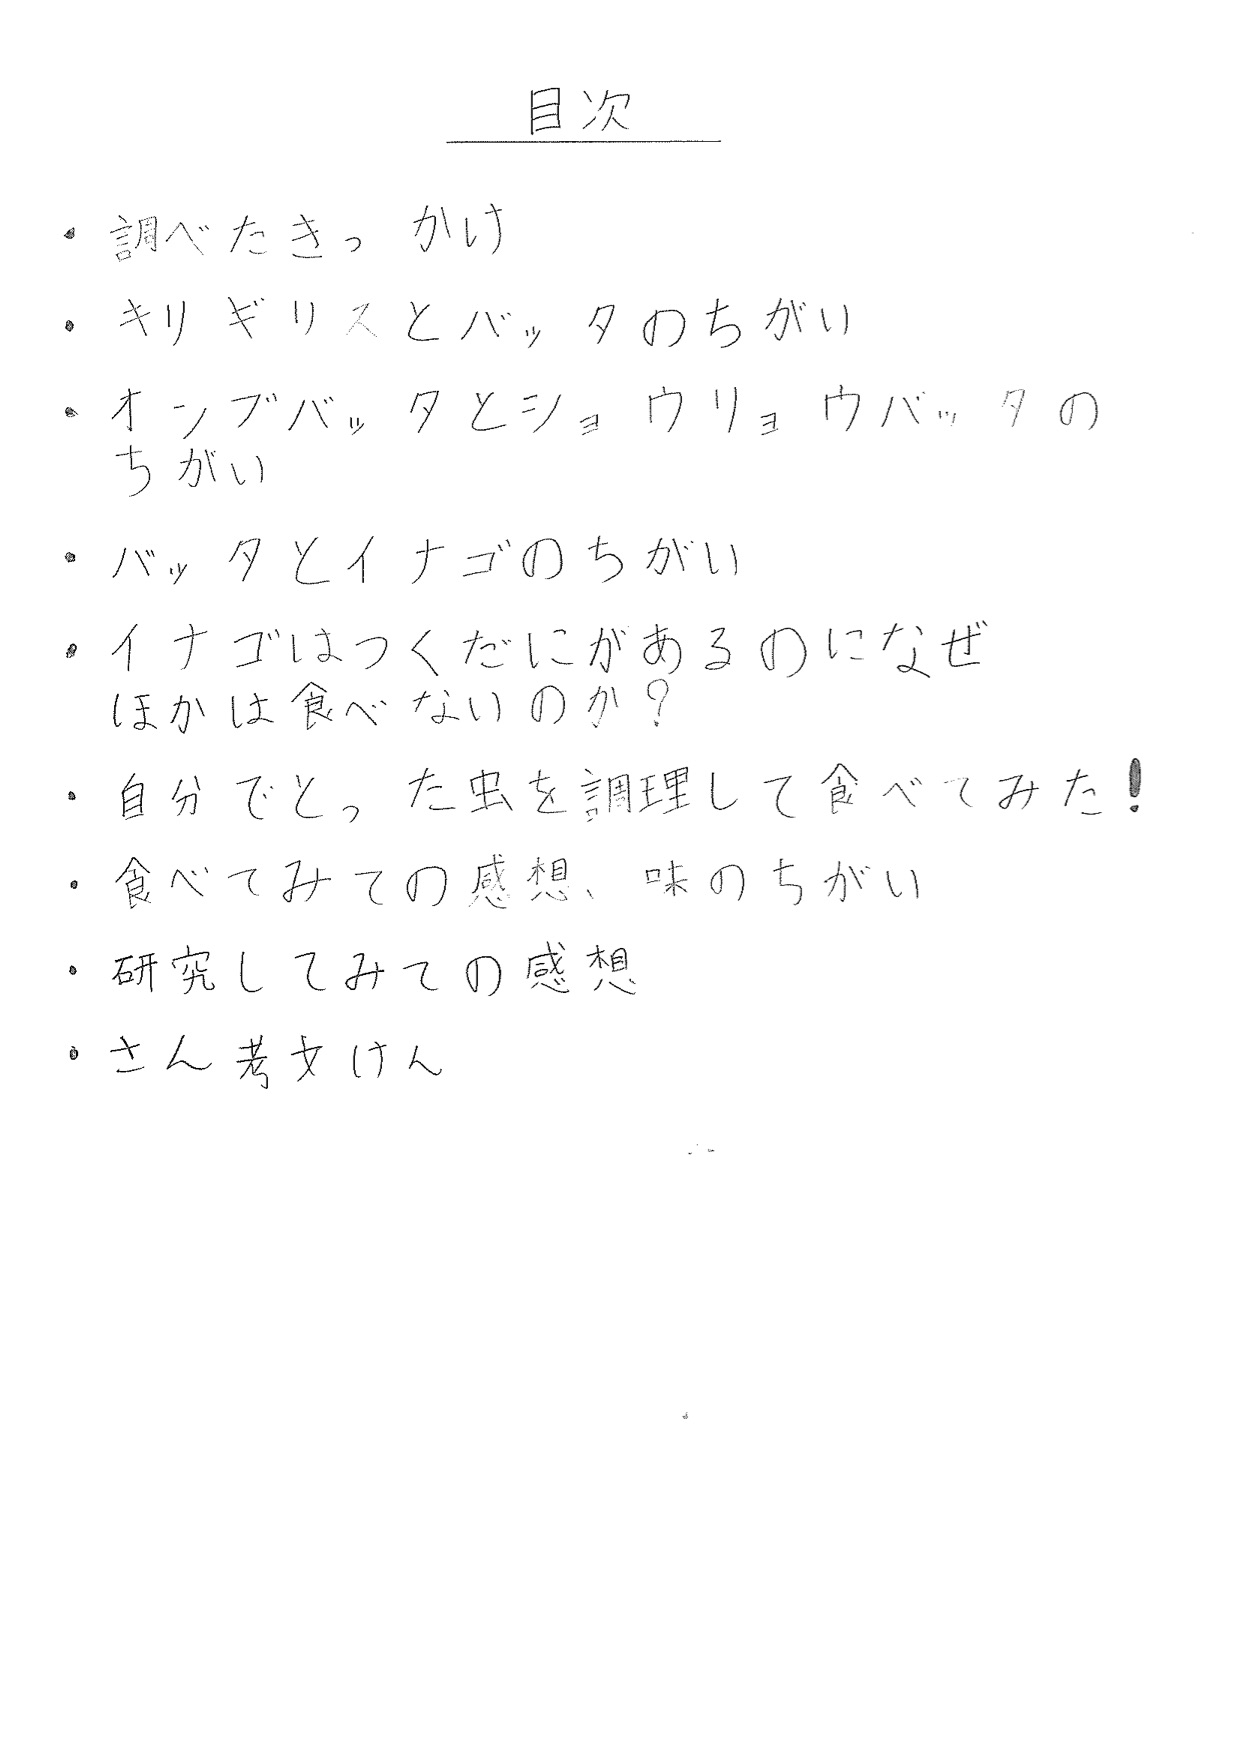 目次
・調べたきっかけ
・キリギリスとバッタのちがい
・オンブバッタとショウリョウバッタの
ちがい
・バッタとイナゴのちがい
・イナゴはつくだにがあるのになぜ
ほかは食べないのか?
・自分でとった虫を調理して食べてみた!
・食べてみての感想、味のちがい
・研究してみての感想
・さん考文けん